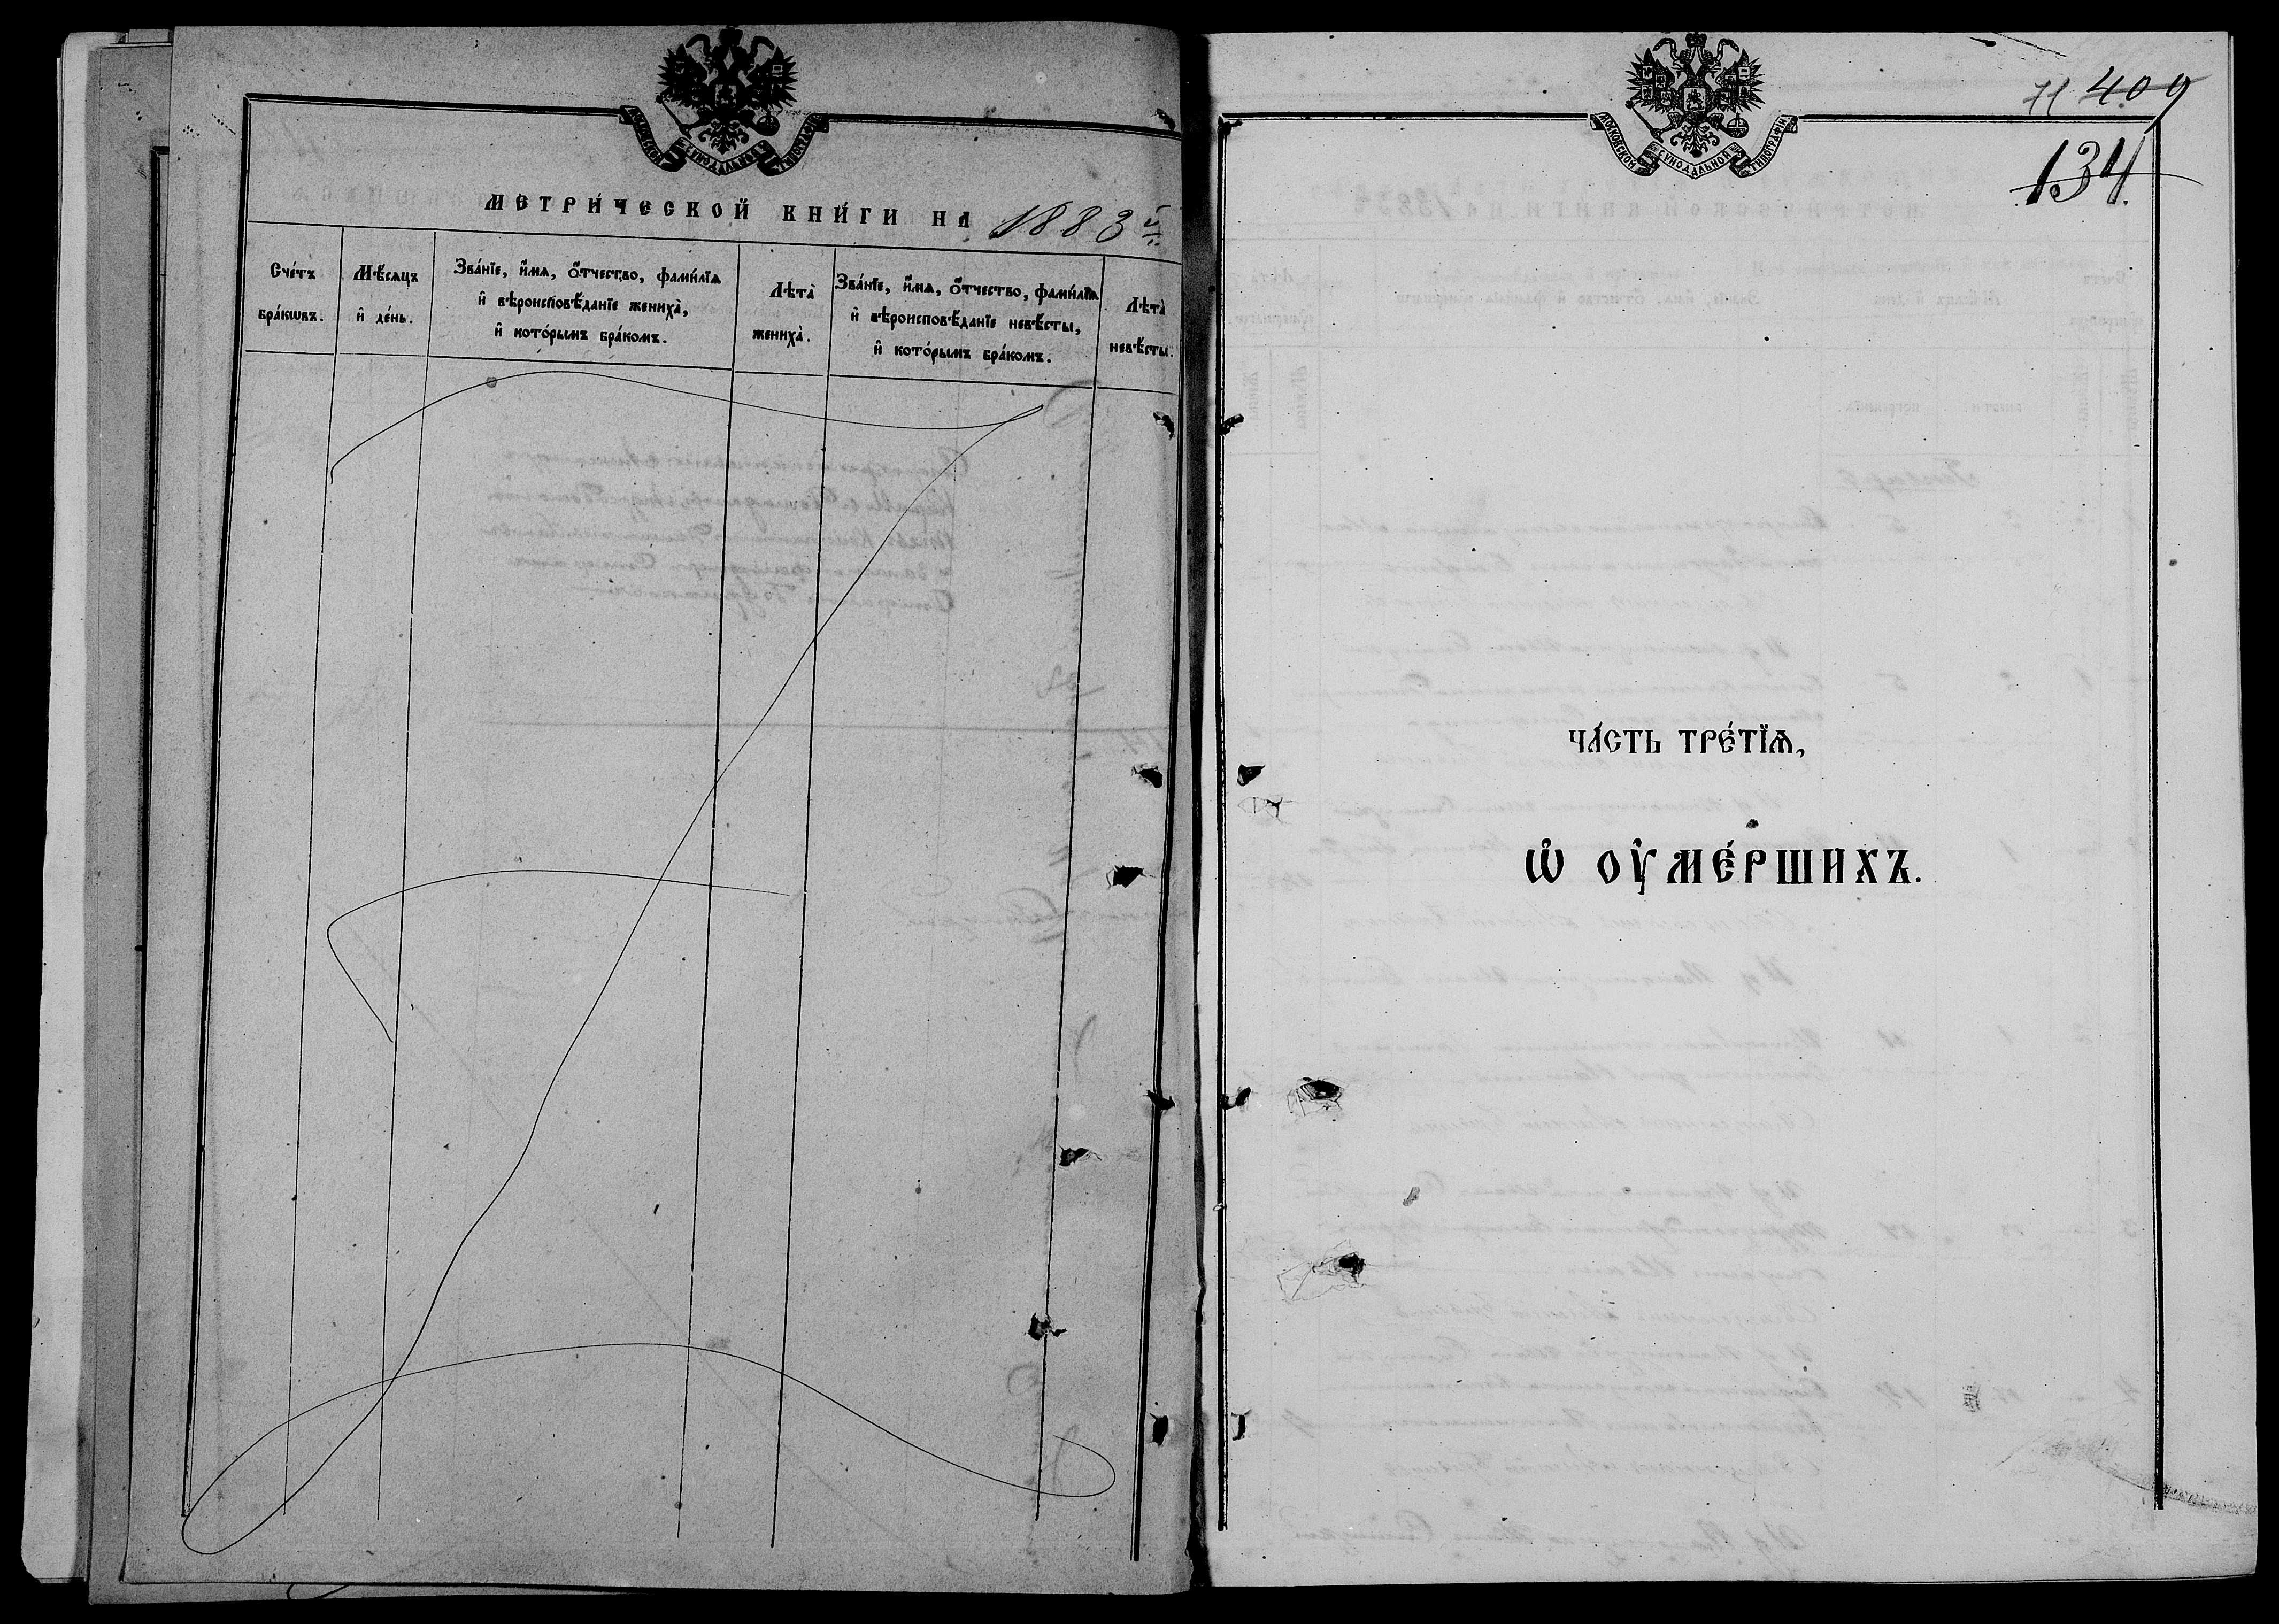 МОСКОВСКОЙ СѴНОДАЛЬНОЙ ТИПОГРАФІИ
МЕТРИ́ЧЕСКОЙ КНИ́ГИ НА 1883 й
Сче́тъ бра́кѡвъ.
Мѣ́сяцъ и҆ де́нь.
Зва́нїе, и҆́мѧ, ѻ҆́тчество, фами́лїѧ
и҆ вѣроисповѣ́данїе жениха̀,
и҆ кото́рымъ бра́комъ.
Лѣта̀ жениха̀.
Зва́нїе, и҆́мѧ, ѻ҆́тчество, фами́лїѧ
и҆ вѣроисповѣ́данїе невѣ́сты,
и҆ кото́рымъ бра́комъ.
Лѣта̀ невѣ́сты.
МОСКОВСКОЙ СѴНОДАЛЬНОЙ ТИПОГРАФІИ
71 409
134.
ЧА́СТЬ ТРЕ́ТЇѦ,
Ѡ҆ ОУ҆МЕ́РШИХЪ.